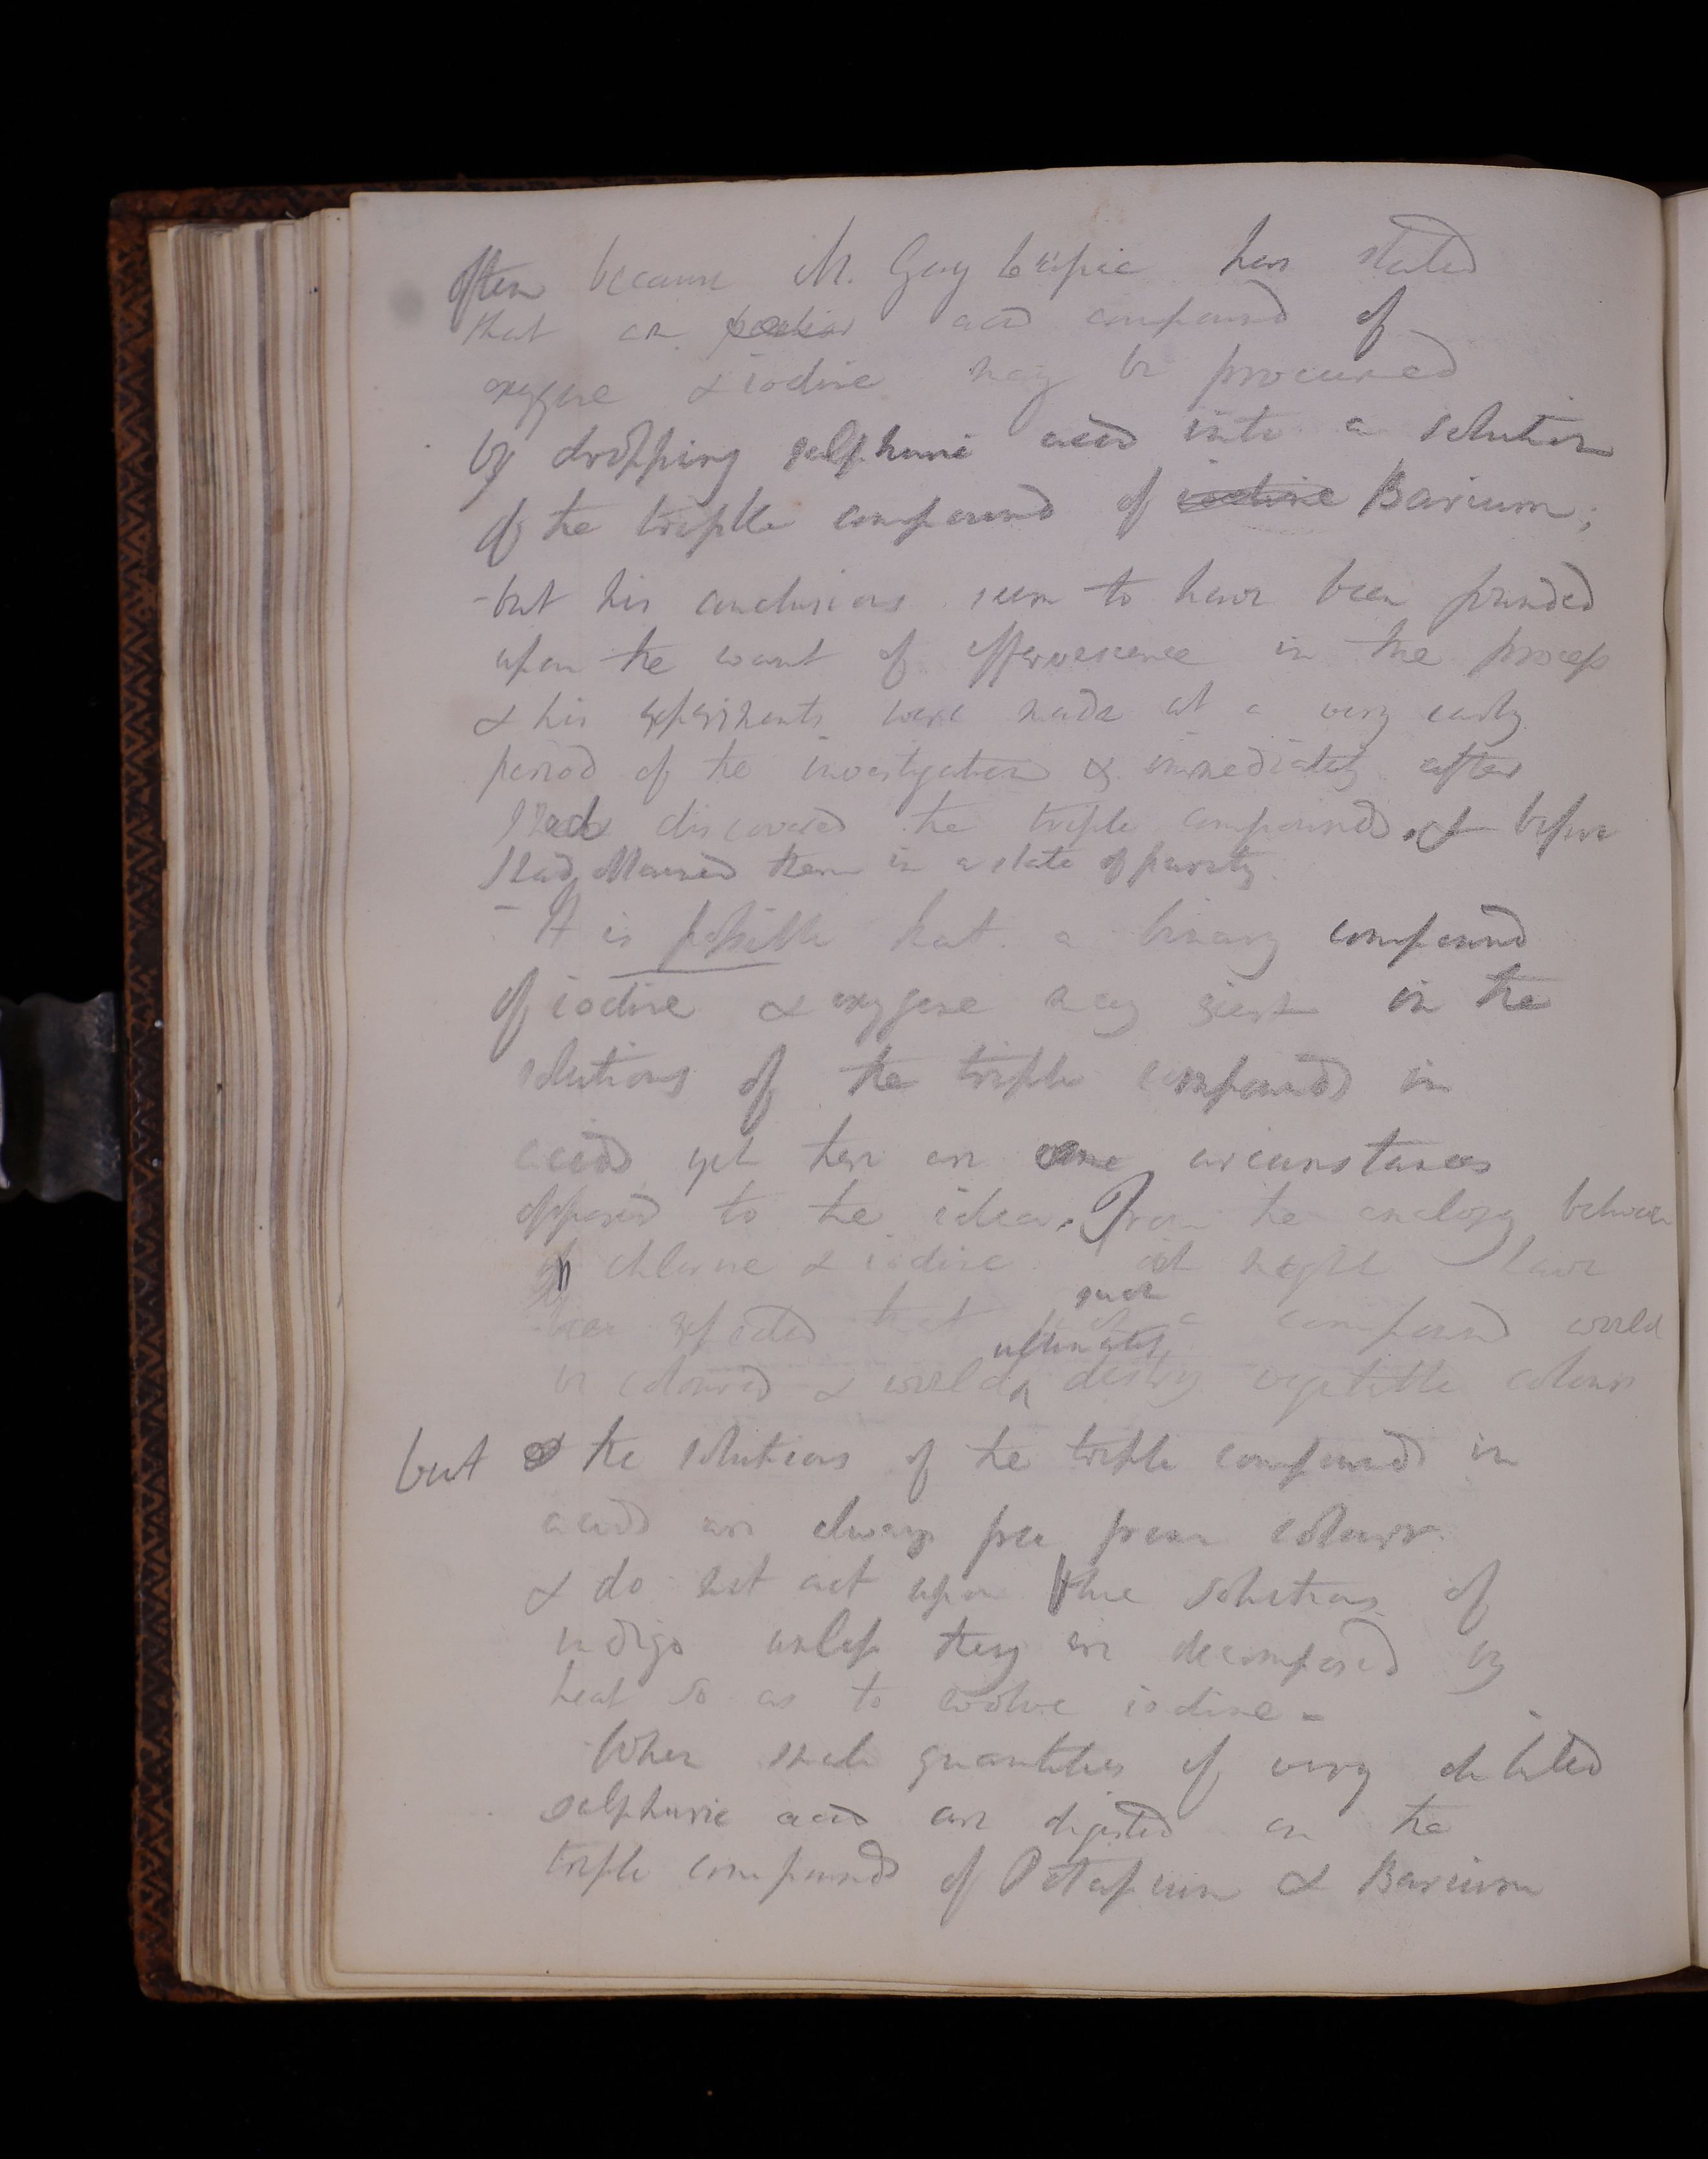 often because M. Gay Lussac has stated
that an peculiar acid compound of
oxygene & iodine may be procured
by dropping sulphuric acid into a solution
of the triple compound of iodine Barium;
- but his conclusions seem to have been founded
upon the want of effervescence in the process
& his experiments were made at a very early
period of the investigation & immediately after
I had discovered the triple compounds, & before
I had obtained them in a state of purity.
- It is possible that a binary compound
of iodine & oxygene may exist in the
solutions of the triple compounds in
acids yet there are some circumstances
opposed to the idea. From the analogy between
chlorine & iodine it might have
been expected that such a compound would
be coloured & would ultimately destroy vegetable colours
but the solutions of the triple compounds in
acids are always free from colour
& do not act upon the solutions of
indigo unless they are decomposed by
heat so as to evolve iodine -
When such quantities of very diluted
sulphuric acid are digested on the
triple compounds of Potassium & Barium